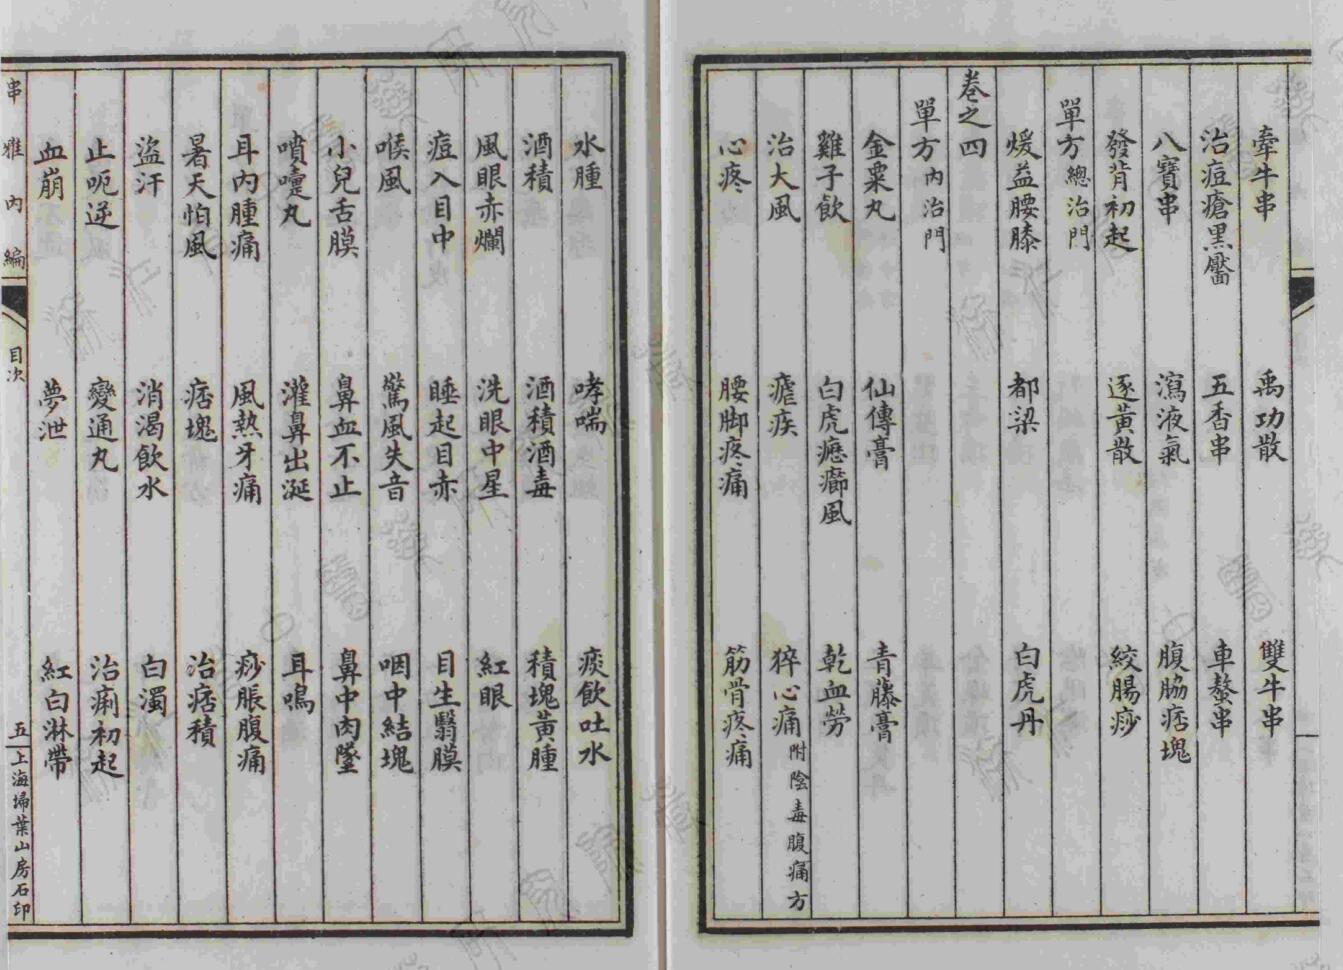 牽牛串　禹功散　雙牛串
治痘瘡黑靨　五香串　車螯串
八寶串　瀉液氣　腹脇痞塊
發背初起　逐黃散　絞腸痧
單方總治門
煖益腰膝　都梁　白虎丹
卷之四
單方內治門
金粟丸　仙傳膏　青藤膏
雞子飲　白虎癋癤風　乾血勞
治大風　瘧疾　猝心痛附陰毒腹痛方
心疼　腰脚疼痛　筋骨疼痛
水腫　哮喘　痰飲吐水
酒積　酒積酒毒　積塊黃腫
風眼赤爛　洗眼中星　紅眼
痘入目中　睡起目赤　目生翳膜
喉風　驚風失音　咽中結塊
小兒舌膜　鼻血不止　鼻中肉墜
噴嚏丸　灌鼻出涎　耳鳴
耳內腫痛　風熱牙痛　痧脹腹痛
暑天怕風　痞塊　治痞積
盜汗　消渴飲水　白濁
止呃逆　變通丸　治痢初起
血崩　夢泄　紅白淋帶
串雅內編　目次　五　上海埽葉山房石印